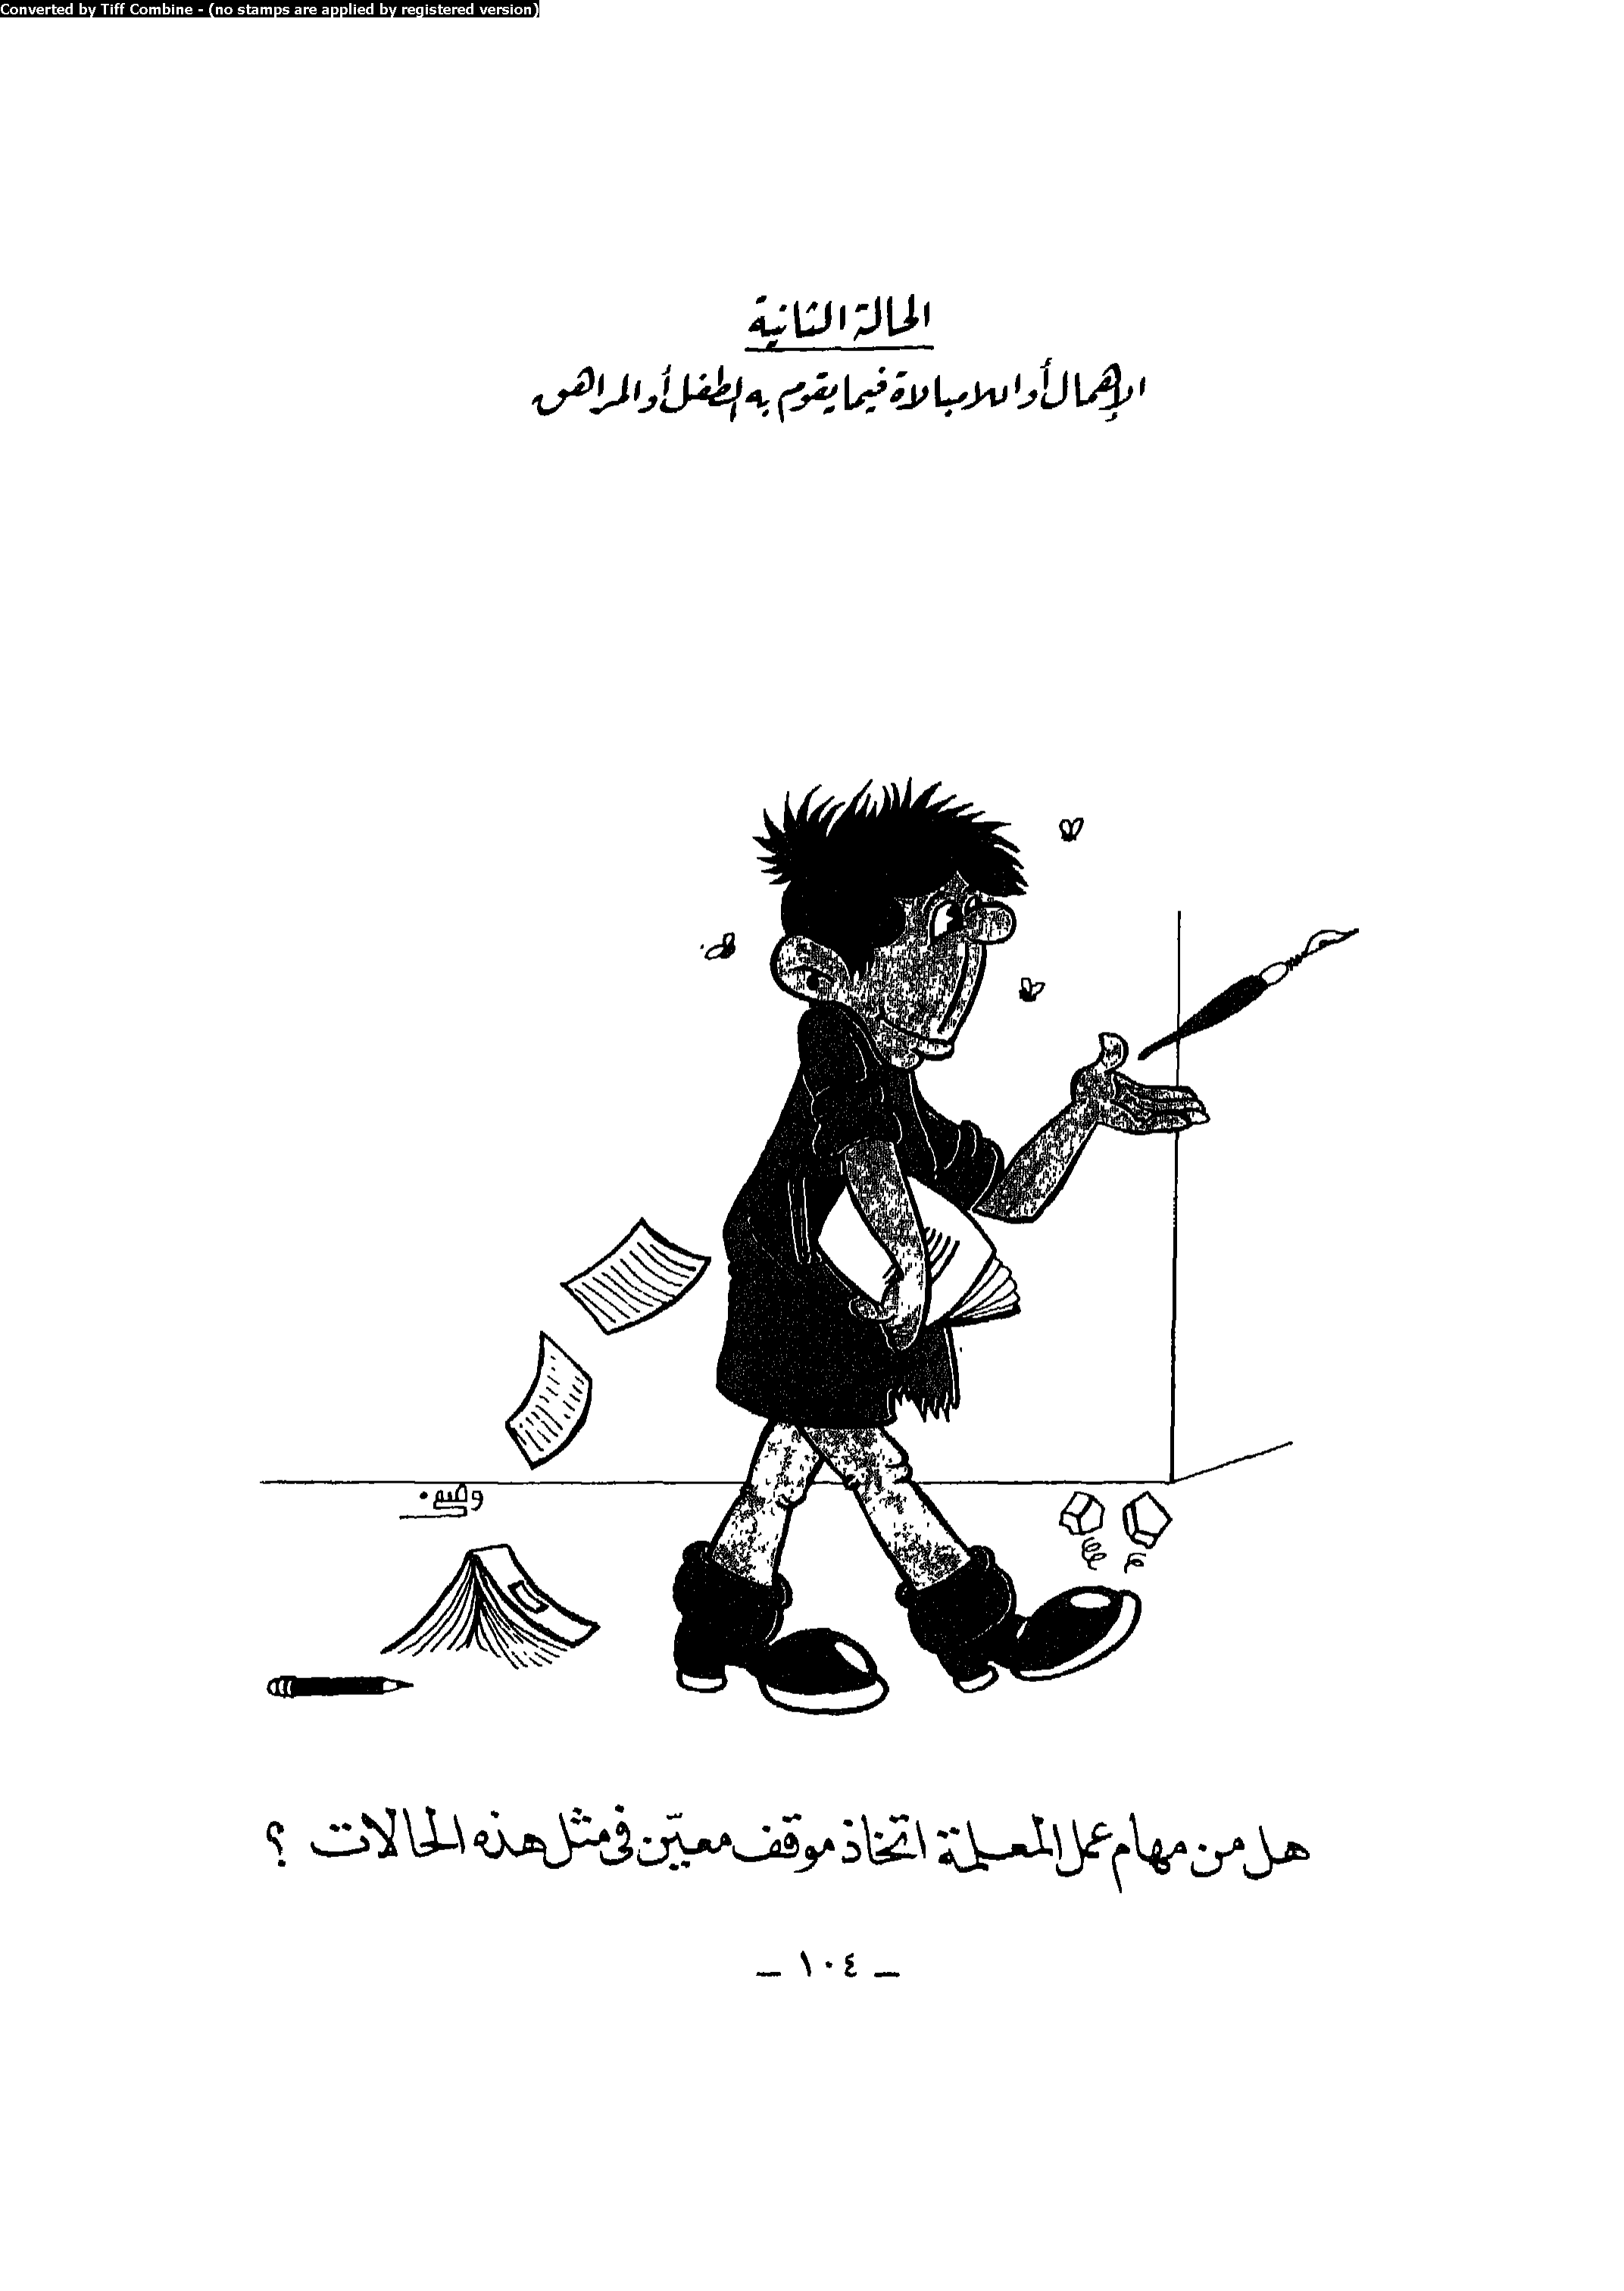 Converted by Tiff Combine - (no stamps are applied by registered version)
الحالة الثانية
الإهمال أو اللامبالاة فيما يقوم به الطفل أو المراهق
هل من مهام عمل المعلمة اتخاذ موقف معيّن في مثل هذه الحالات ؟
_ ١٠٤ _